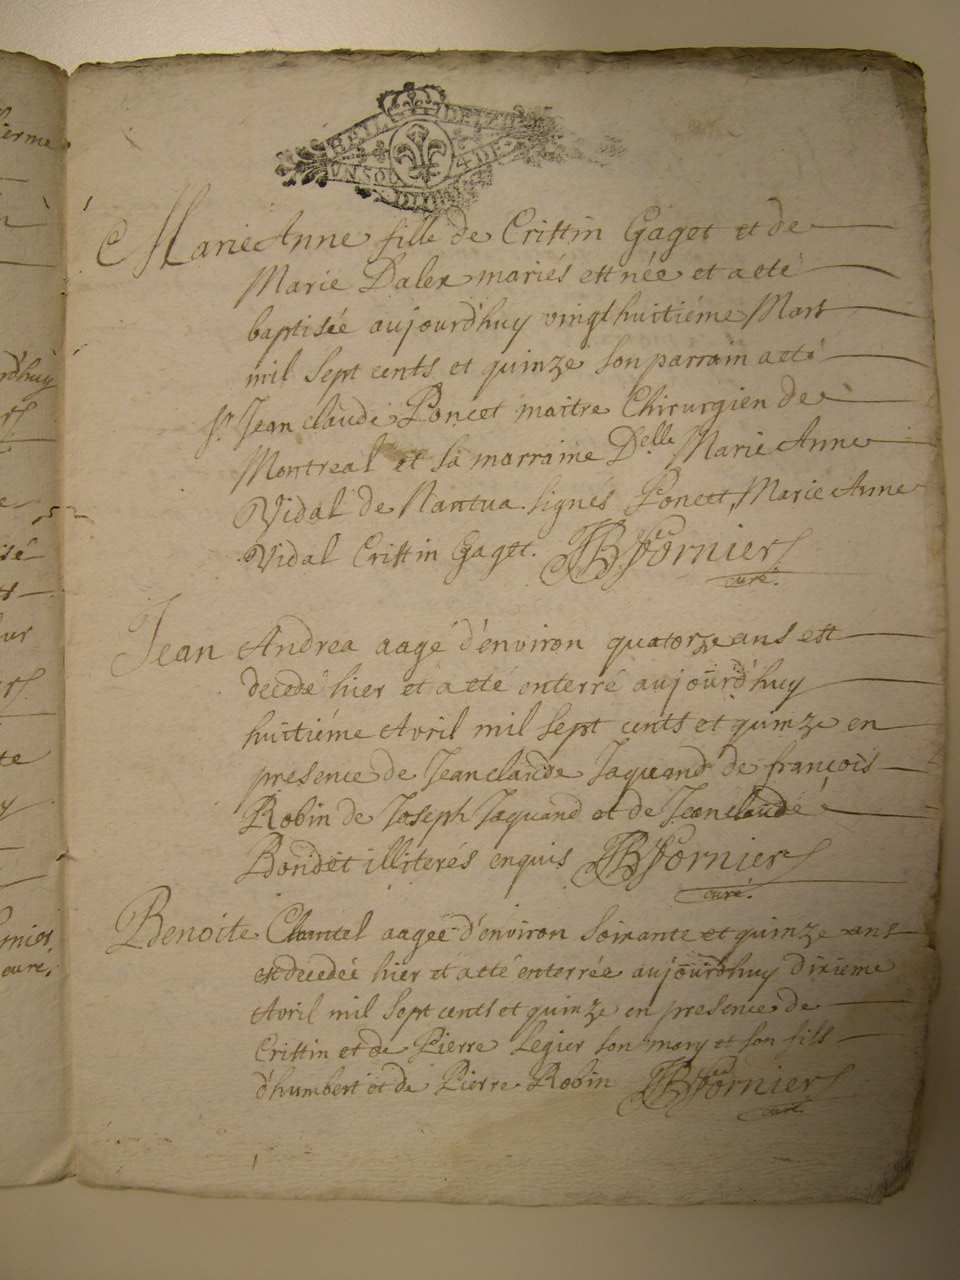 Marie Anne fille de Cristin Gaget et de
Marie Dalex mariés est née et a eté
baptisée aujourd'huy vingthuitiéme Mars
mil sept cents et quinze son parrain a eté
Sr. Jean claude Poncet maitre Chirurgien de
Montreal et sa marraine Delle Marie Anne
Vidal de Nantua. signés Poncet, Marie Anne
Vidal Cristin Gaget. Fornier
curé.
Jean Andrea aagé d'environ quatorze ans est
decedé hier et a eté enterré aujourd'huy
huitiéme Avril mil sept cents et quinze en
presence de Jean claude Jaquand de françois
Robin de Joseph Jaquand et de Jean claude
Bondet illiterés enquis Fornier
curé.
Benoite Chantel aageé d'environ soixante et quinze ans
est decedeé hier et a eté enterrée aujourd'huy dixieme
Avril mil sept cents et quinze en presence de
Cristin et de Pierre Legier son mary et son fils
d'humbert et de Pierre Robin Fornier
curé